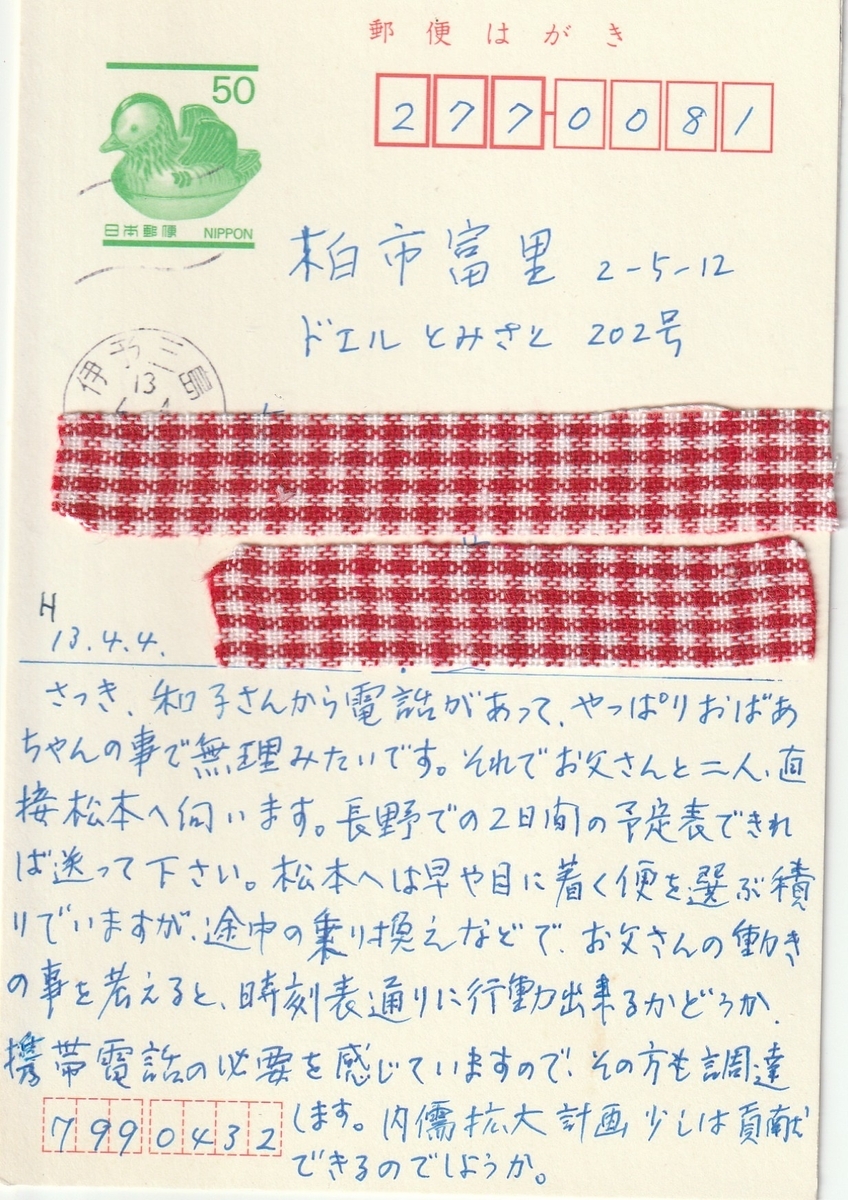 郵便はがき
50
日本郵便 NIPPON
277-0081
柏市富里 2-5-12
ドエルとみさと 202号
伊予三島
13
H
13.4.4.
さっき、和子さんから電話があって、やっぱりおばあ
ちゃんの事で無理みたいです。それでお父さんと二人、直
接松本へ伺います。長野での2日間の予定表できれ
ば送って下さい。松本へは早や目に着く便を選ぶ積
りでいますが、途中の乗り換えなどで、お父さんの動き
の事を考えると、時刻表通りに行動出来るかどうか、
携帯電話の必要を感じていますので、その方も調達
します。内儒拡大計画少しは貢献
できるのでしょうか。
7990432